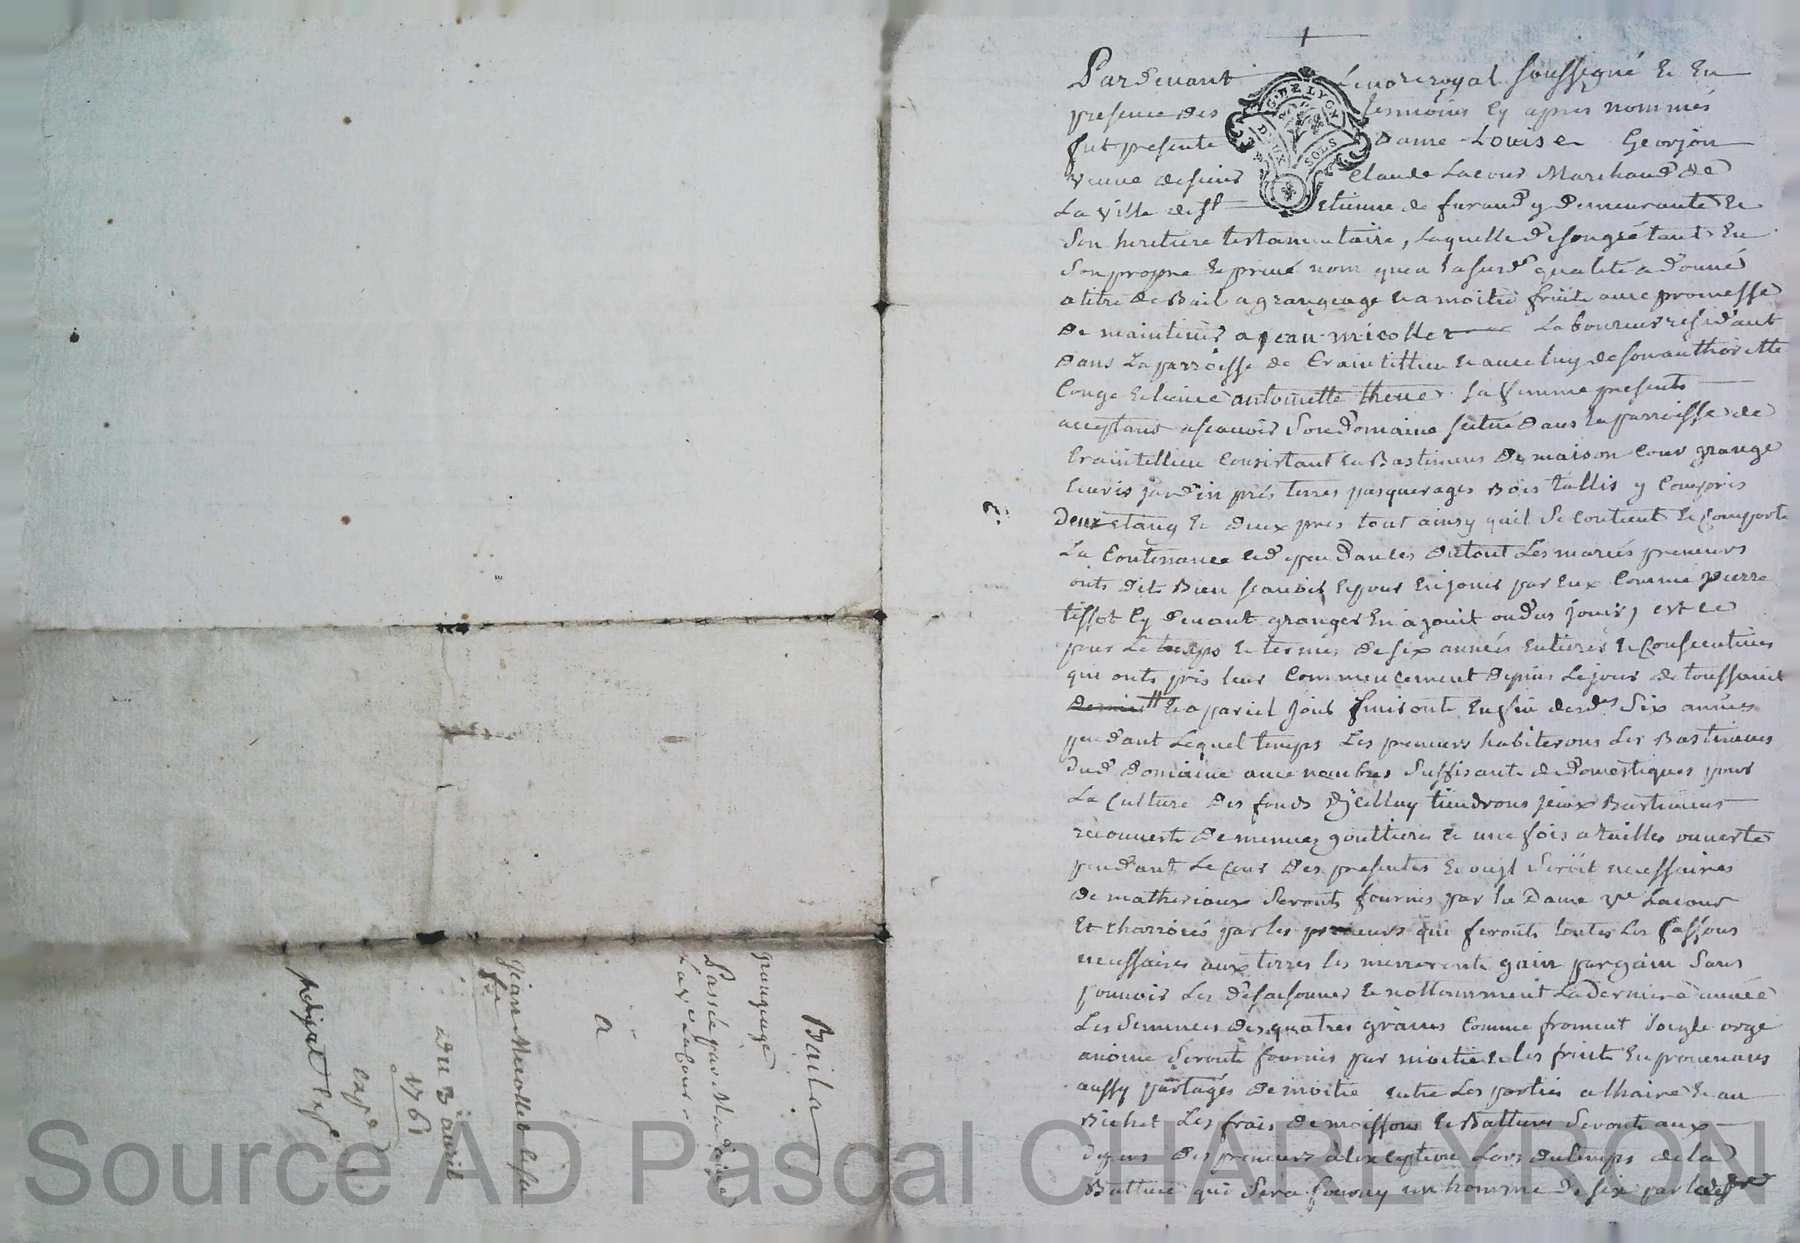 Pardevant Le no.re royal soussigné Et En
presence des temoins Cy apres nommés
fut presente Dame Louise Georjon
veuve de sieur Claude Lacour Marchand de
La ville de St Etienne de furand y Demeurante Et
Son heritiere testamentaire, Laquelle de son gré tant En
Son propre Et privé nom quen La susd.e qualité a donné
a titre de Bail a grangeage Et a moitié fruits avec promesse
de maintenir a jean micollet Laboureur residant
Dans La parroisse de Craintillieu Et avec luy de son authorité
Congé Et licence antoinette thevet Sa femme presents
acceptans ascavoir Son Domaine scitué Dans la parroisse de
Craintillieu Consistant En Bastiments de maison Cour grange
Ecuris jardin prés terres pasquerages Bois tallis y Compris
Deux Etang Et deux prés tout ainsy quil Se Contient Et Comporte
La Contenance Et dependances du tout Les mariés preneurs
onts dit Bien scavoir Et pour En jouir par Eux Comme pierre
tissot Cy devant granger En a jouit ou dus jouir, Et Ce
pour Le temps Et termes de six années Entieres Et Consecutives
qui onts pris leur Commencement depuis Le jour de toussaint
Et a pareil jour finiront En fin desd.es Six années
pendant Lequel temps Les preneurs habiterons Les Bastiments
dud. domaine avec nombres Suffisants de domestiques pour
La Culture des fonds dycelluy tiendrons jceux Bastiments
recouvert de menues gouttieres Et une fois a tuilles ouverte
pendant Le Cour des presentes Et ou jl Seroit necessaires
de matheriaux Seronts fournis par la Dame v.ve Lacour
Et charroiés par les preneurs qui feronts toutes Les fassons
necessaires aux terres les mettronts gain par gain Sans
pouvoir Les desaisonner Et nottamment La Derniere année
Les Semences des quatres grains Comme froment Soigle orge
avoine Seronts fournis par moitié Et les fruits En provenans
aussy partagés de moitié Entre Les parties a lhaire Et au
Bichet Les frais de moissons Et Battures Seronts aux
depens des preneurs a lexeption Lors du temps de la
Batture qui Sera fourny un homme de six par lad.
G. DE LYON
DEUX SOLS
Bail a
grangeage
Passé par
La V.e Lacour
a
Jean Micollet Et sa
f.e
Du 3 avril
1761
exp.e
Source AD Pascal CHAREYRON